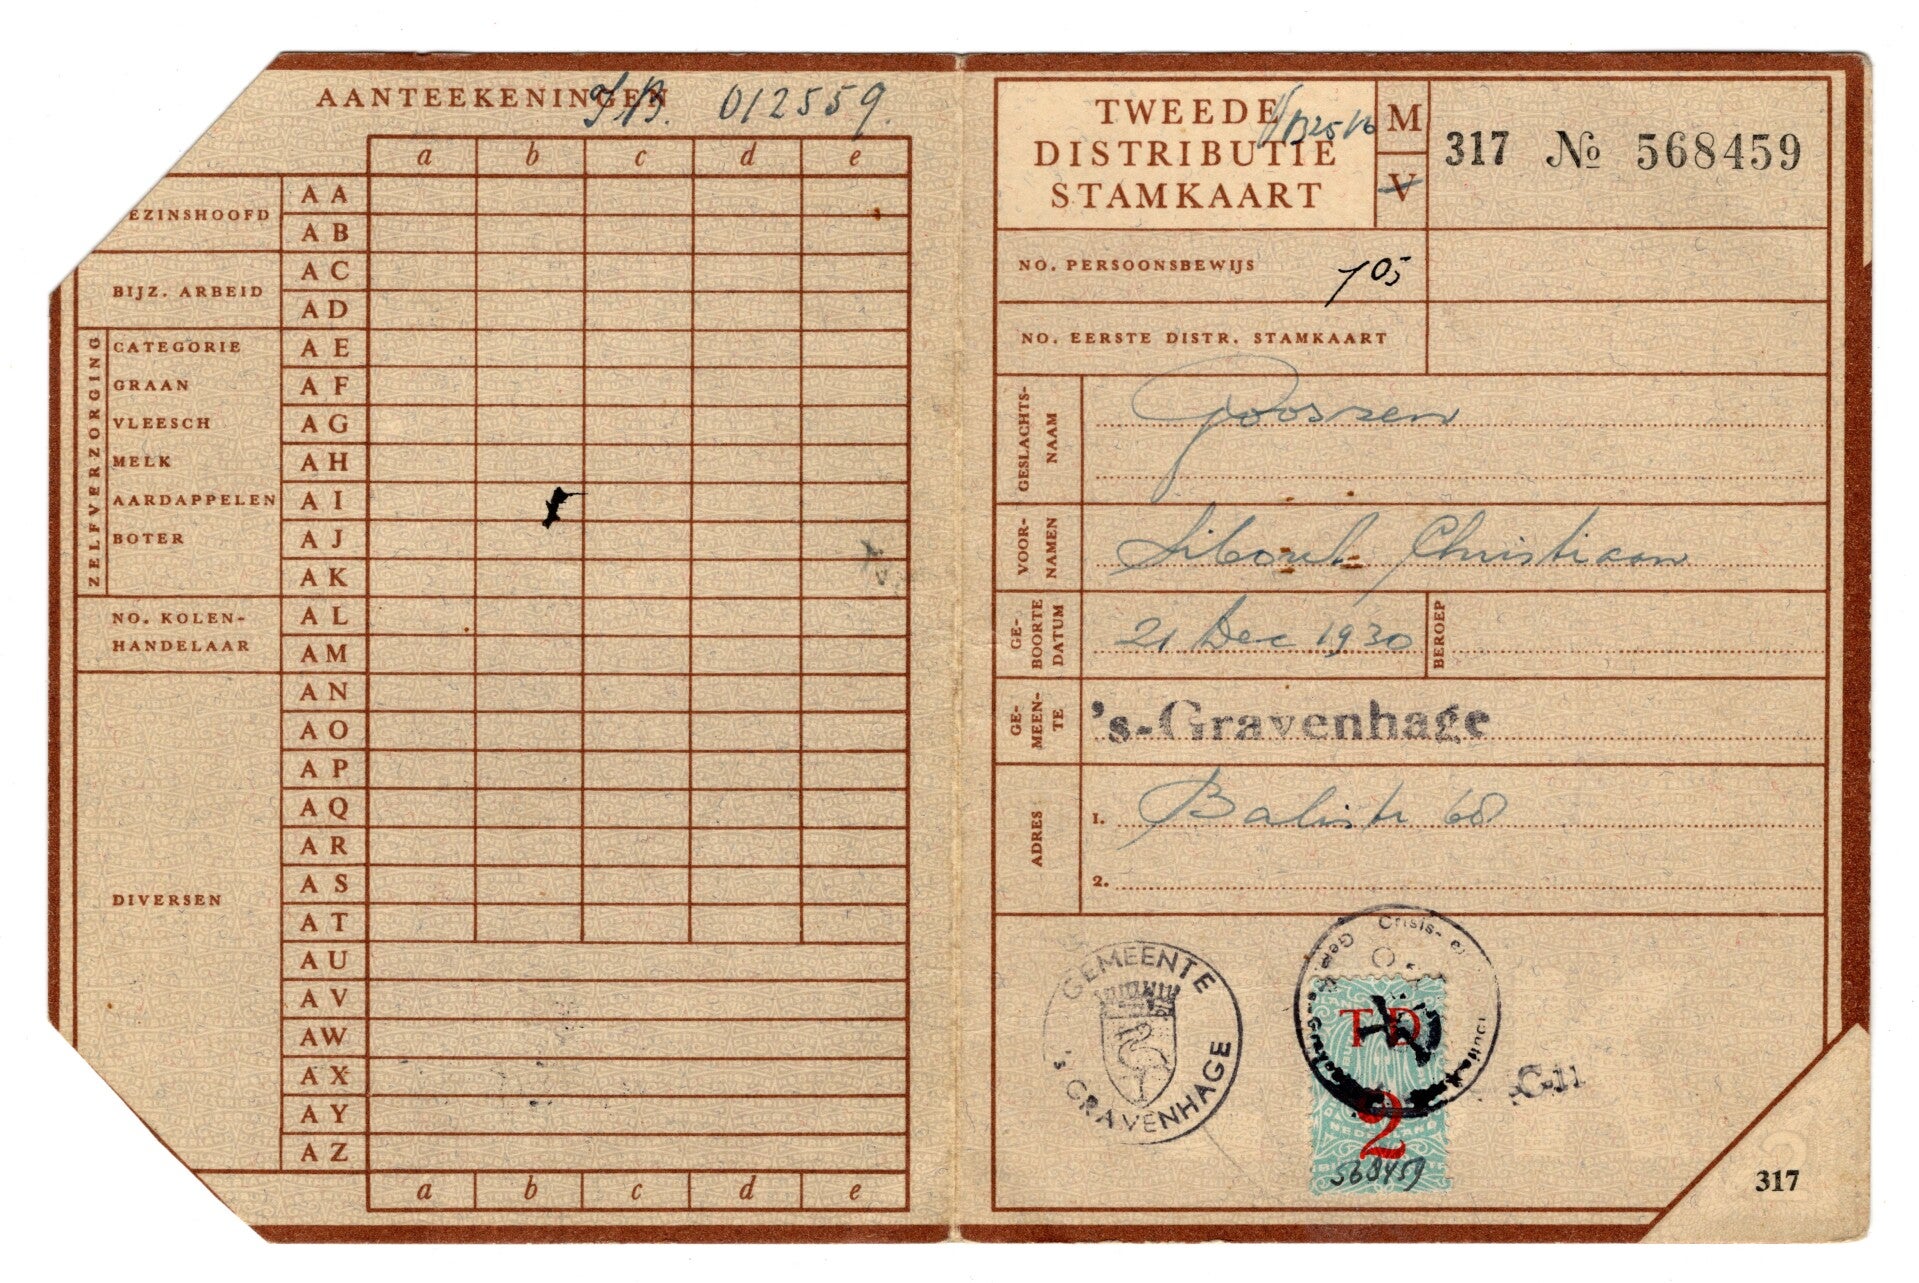 AANTEEKENINGEN 012559.
a b c d e
EZINSHOOFD
A A
A B
BIJZ. ARBEID
A C
A D
ZELFVERZORGING
CATEGORIE A E
GRAAN A F
VLEESCH A G
MELK A H
AARDAPPELEN A I
BOTER A J
A K
NO. KOLEN-
HANDELAAR
A L
A M
A N
A O
A P
A Q
A R
DIVERSEN
A S
A T
A U
A V
A W
A X
A Y
A Z
a b c d e
TWEEDE
DISTRIBUTIE
STAMKAART
M
V
317 No 568459
NO. PERSOONSBEWIJS 705
NO. EERSTE DISTR. STAMKAART
GESLACHTS-
NAAM
Goossen
VOOR-
NAMEN
Sibout Christiaan
GE-
BOORTE
DATUM
21 Dec 1930
BEROEP
GE-
MEEN-
TE
's-Gravenhage
ADRES
1. Balistr 68
2.
GEMEENTE
's GRAVENHAGE
Crisis-
TD
2
NEDERLAND
568459
C-11
317